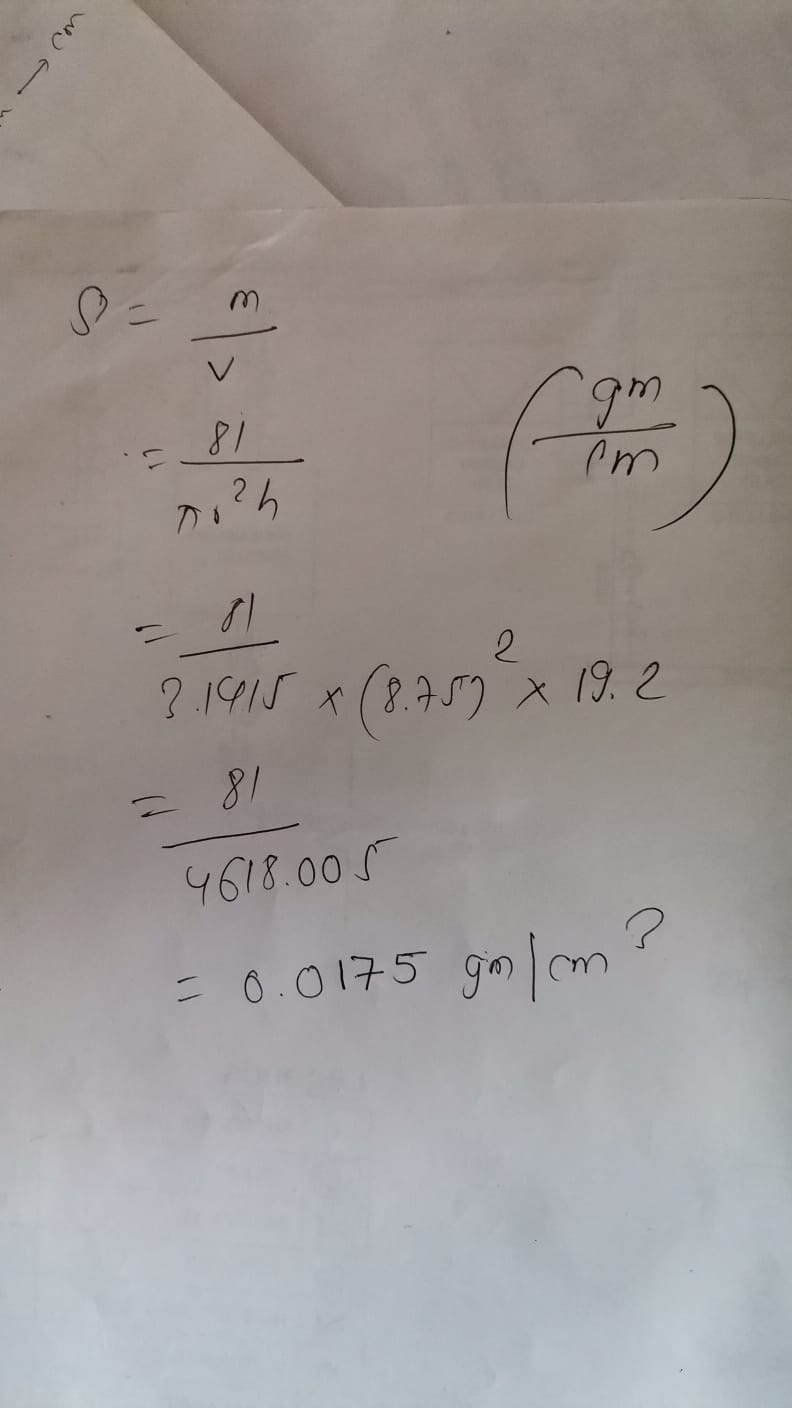 → cm
ρ = m/v
(gm/cm)
= 81/πr²h
= 81/3.1415 × (8.75)² × 19.2
= 81/4618.005
= 0.0175 gm/cm³